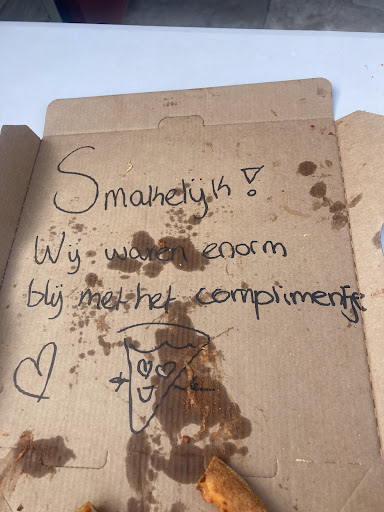 Smakelijk!
Wij waren enorm
blij met het complimentje